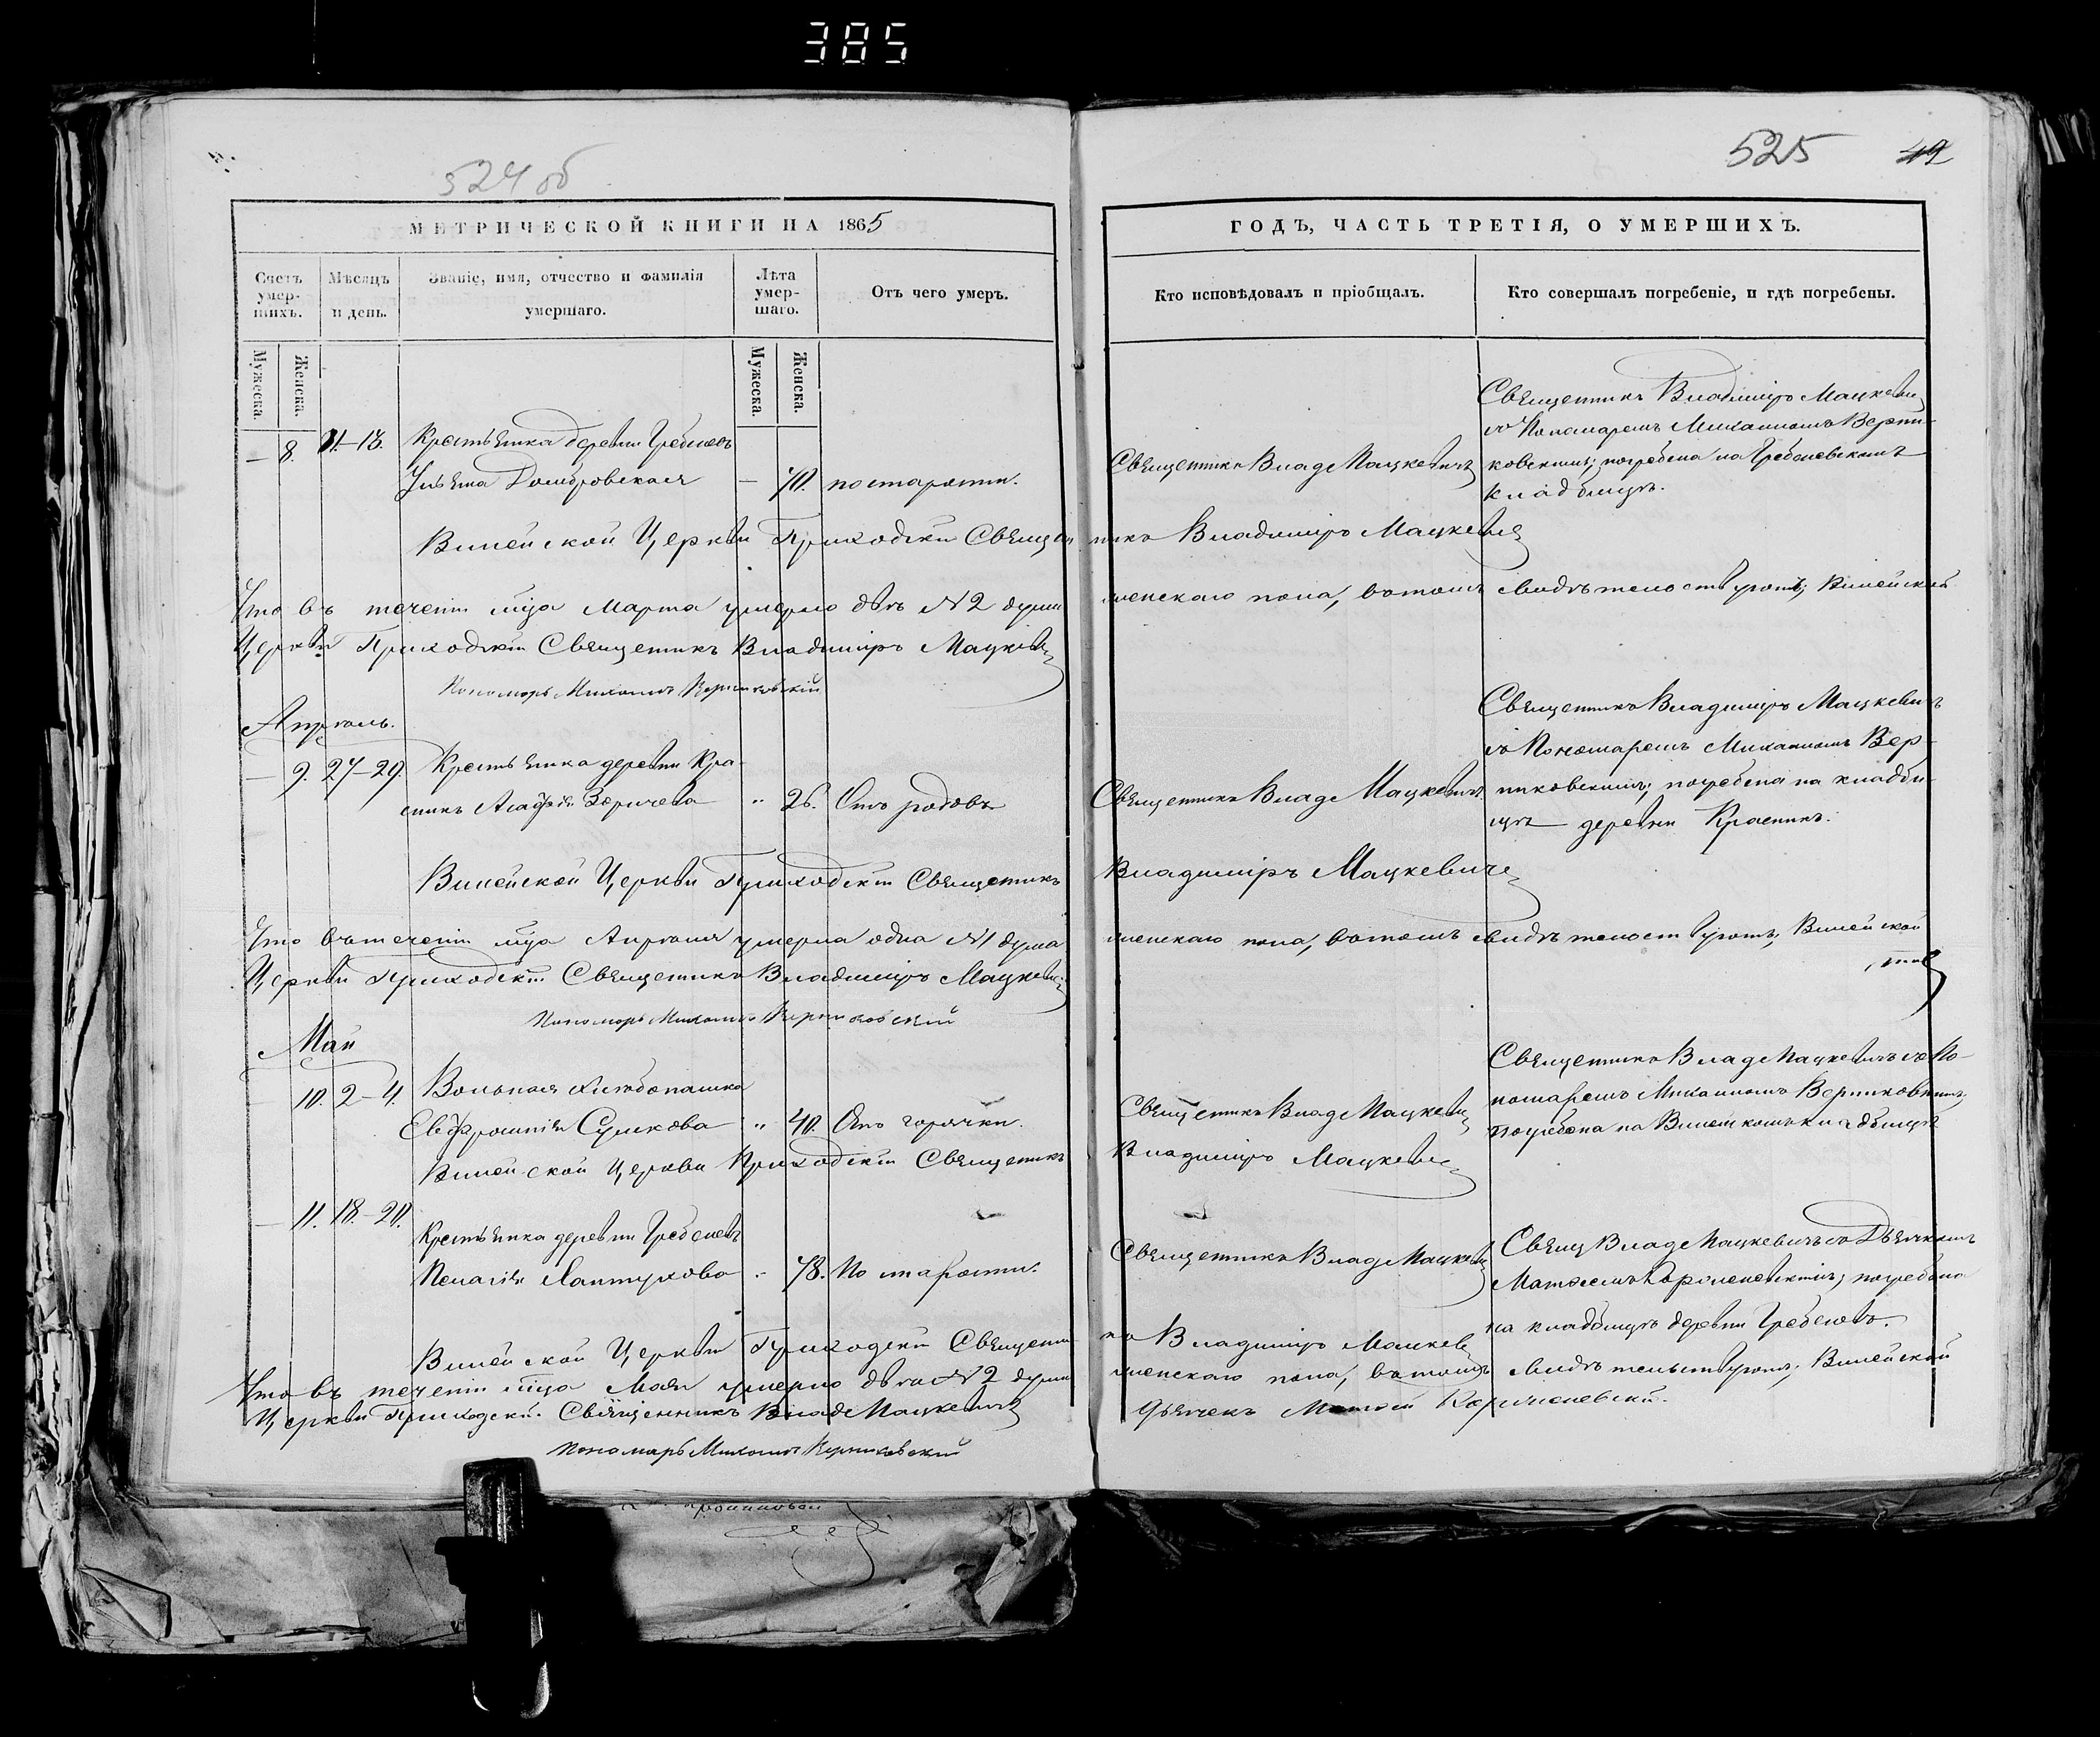 385
524 об
525 49
МЕТРИЧЕСКОЙ КНИГИ НА 1865
ГОДЪ, ЧАСТЬ ТРЕТІЯ, О УМЕРШИХЪ.
Счетъ умер-шихъ.
Мѣсяцъ и день.
Званіе, имя, отчество и фамилія умершаго.
Лѣта умер-шаго.
Отъ чего умеръ.
Кто исповѣдовалъ и пріобщалъ.
Кто совершалъ погребеніе, и гдѣ погребены.
Мужеска. Женска.
Мужеска. Женска.
— 8. 11.–13. Крестьянка деревни Гребеневъ
Ульяна Домбровская — 70. по старости.
Священникъ Влад Мацкевичъ
Священникъ Владиміръ Мацкевич
съ Пономаремъ Михаиломъ Верни-
ковскимъ; погребена на Гребеневскомъ
кладбищѣ.
Вилейской Церкви Приходскій Священникъ Владиміръ Мацкевич
Что въ теченіи мца Марта умерло двѣ №2 души женскаго пола, въ томъ свидѣтельствуютъ; Вилейской
Церкви Приходскій Священникъ Владиміръ Мацкевич
Пономарь Михаилъ Верниковскій
Апрѣль.
— 9. 27–29. Крестьянка деревни Кра-
сникъ Агафія Зоричева " 26. Отъ родовъ
Священникъ Влад Мацкевичъ
Священникъ Владиміръ Мацкевичъ
съ Пономаремъ Михаиломъ Вер-
никовскимъ; погребена на кладби-
щѣ деревни Красникъ.
Вилейской Церкви Приходскій Священникъ Владиміръ Мацкевичъ
Что въ теченіи мца Апрѣля умерла одна №1 душа женскаго пола, въ томъ свидѣтельствуютъ; Вилейской
Церкви Приходскій Священникъ Владиміръ Мацкевич
Пономарь Михаилъ Верниковскій
Май
— 10. 2–4. Вольная хлѣбопашка
Евфросинія Сумкова " 40. Отъ горячки.
Священникъ Влад Мацкевич
Священникъ Влад Мацкевичъ съ По-
номаремъ Михаиломъ Верниковскимъ,
погребена на Вилейскомъ кладбищѣ
Вилейской Церкви Приходскій Священникъ Владиміръ Мацкевич
— 11. 18.–20.
Крестьянка деревни Гребеневъ
Пелагія Лаптухова " 78. По старости.
Священникъ Влад Мацкевич
Свящ Влад Мацкевичъ съ Дьячкомъ
погребена
на кладбищѣ деревни Гребеневъ.
Вилейской Церкви Приходскій Священникъ Владиміръ Мацкев
Что въ теченіи мца Мая умерло двѣ №2 души женскаго пола, въ томъ свидѣтельствуютъ; Вилейской
Церкви Приходскій Священникъ Влад Мацкевичъ Дьячекъ
Пономарь Михаилъ Верниковскій